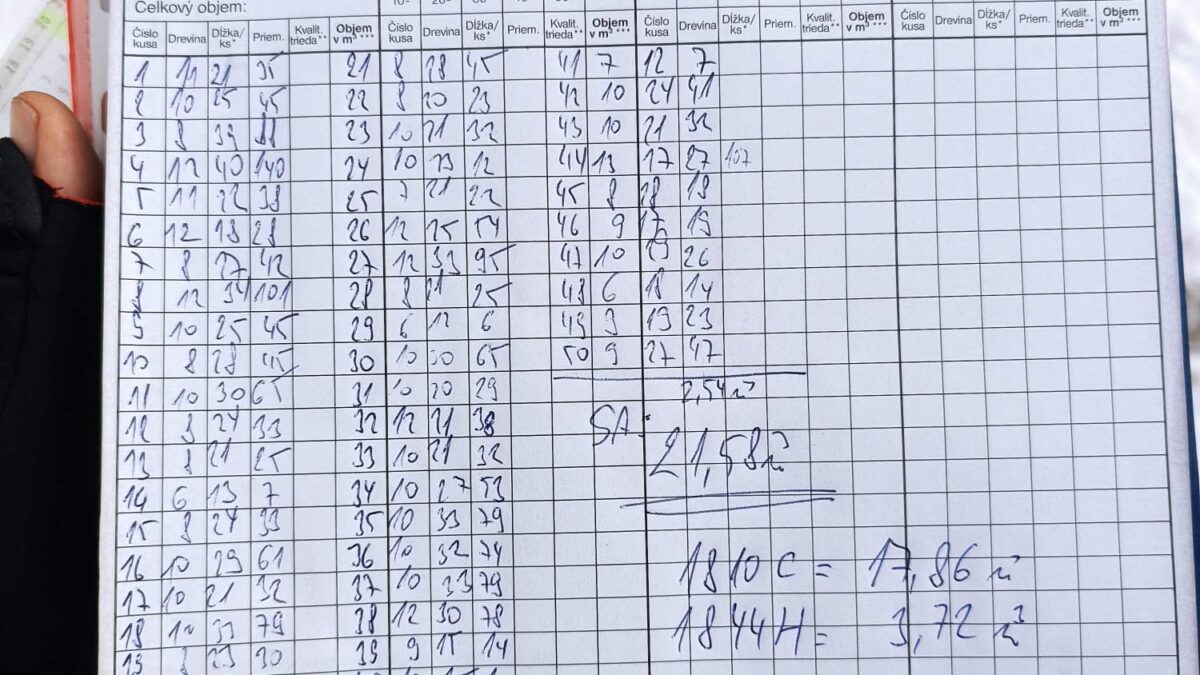 Celkový objem:
Číslo kusa Drevina Dĺžka/ks* Priem. Kvalit. trieda** Objem v m³*** Číslo kusa Drevina Dĺžka/ks* Priem. Kvalit. trieda** Objem v m³*** Číslo kusa Drevina Dĺžka/ks* Priem. Kvalit. trieda** Objem v m³*** Číslo kusa Drevina Dĺžka/ks* Priem. Kvalit. trieda** Objem v m³***
1 11 21 35 21 8 28 45 41 7 12 7
2 10 25 45 22 8 20 23 42 10 24 41
3 8 39 23 10 21 32 43 10 21 32
4 12 40 140 24 10 13 12 44 13 17 27 107
5 11 22 38 25 7 21 22 45 8 18 18
6 12 18 28 26 12 25 54 46 9 17 19
7 8 27 42 27 12 33 95 47 10 19 26
8 12 34 101 28 8 21 25 48 6 18 14
9 10 25 45 29 6 12 6 49 9 19 23
10 8 28 45 30 10 30 65 50 9 27 47
11 10 30 65 31 10 20 29 2,54 m³
12 8 24 33 32 12 21 38 SA:
13 8 21 25 33 10 21 32 21,58 m³
14 6 13 7 34 10 27 53
15 8 24 33 35 10 33 79
16 10 29 61 36 10 32 74 1810 C = 17,86 m³
17 10 21 32 37 10 33 79
18 10 33 79 38 12 30 78 1844 H = 3,72 m³
19 8 23 30 39 9 15 14